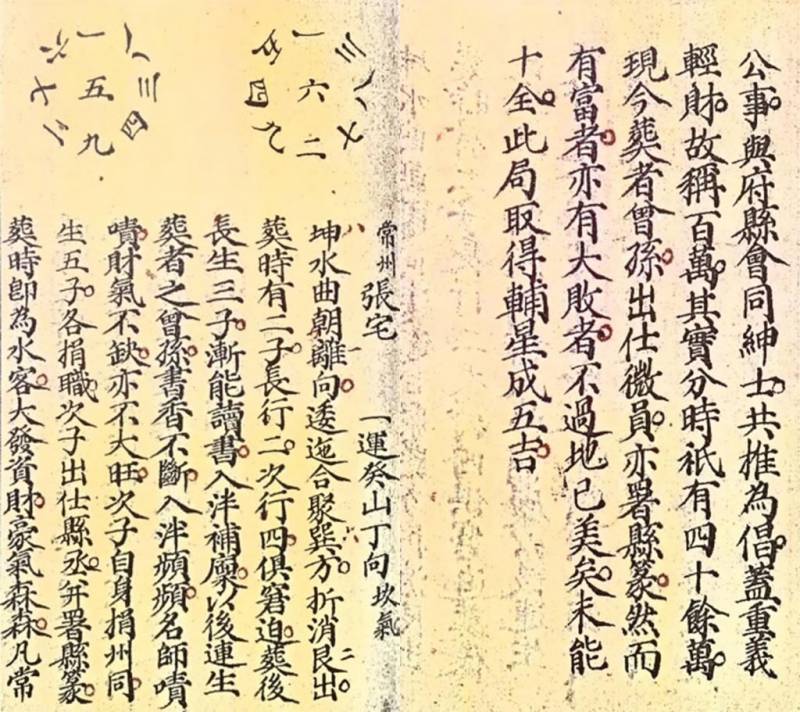 公事與府縣會同紳士共推為倡蓋重義
輕財故稱百萬其實分時祇有四十餘萬
現今葬者曾孫出仕微員亦署縣篆然而
有富者亦有大敗者不過地已美矣未能
十全此局取得輔星成五吉
五一三
四六八
九二七
六一八
七五三
二九四
常州張宅 一運癸山丁向坎氣
八 一 六 二
坤水曲朝離向逶迤合聚巽方折消艮出
葬時有二子長行二次行四俱窘迫葬後
長生三子漸能讀書入泮補廩以後連生
葬者之曾孫書香不斷入泮頻頻名師嘖
嘖財氣不缺亦不大旺次子自身捐州同
生五子各捐職次子出仕縣丞并署縣篆
葬時卽為水客大發資財豪氣森森凡常